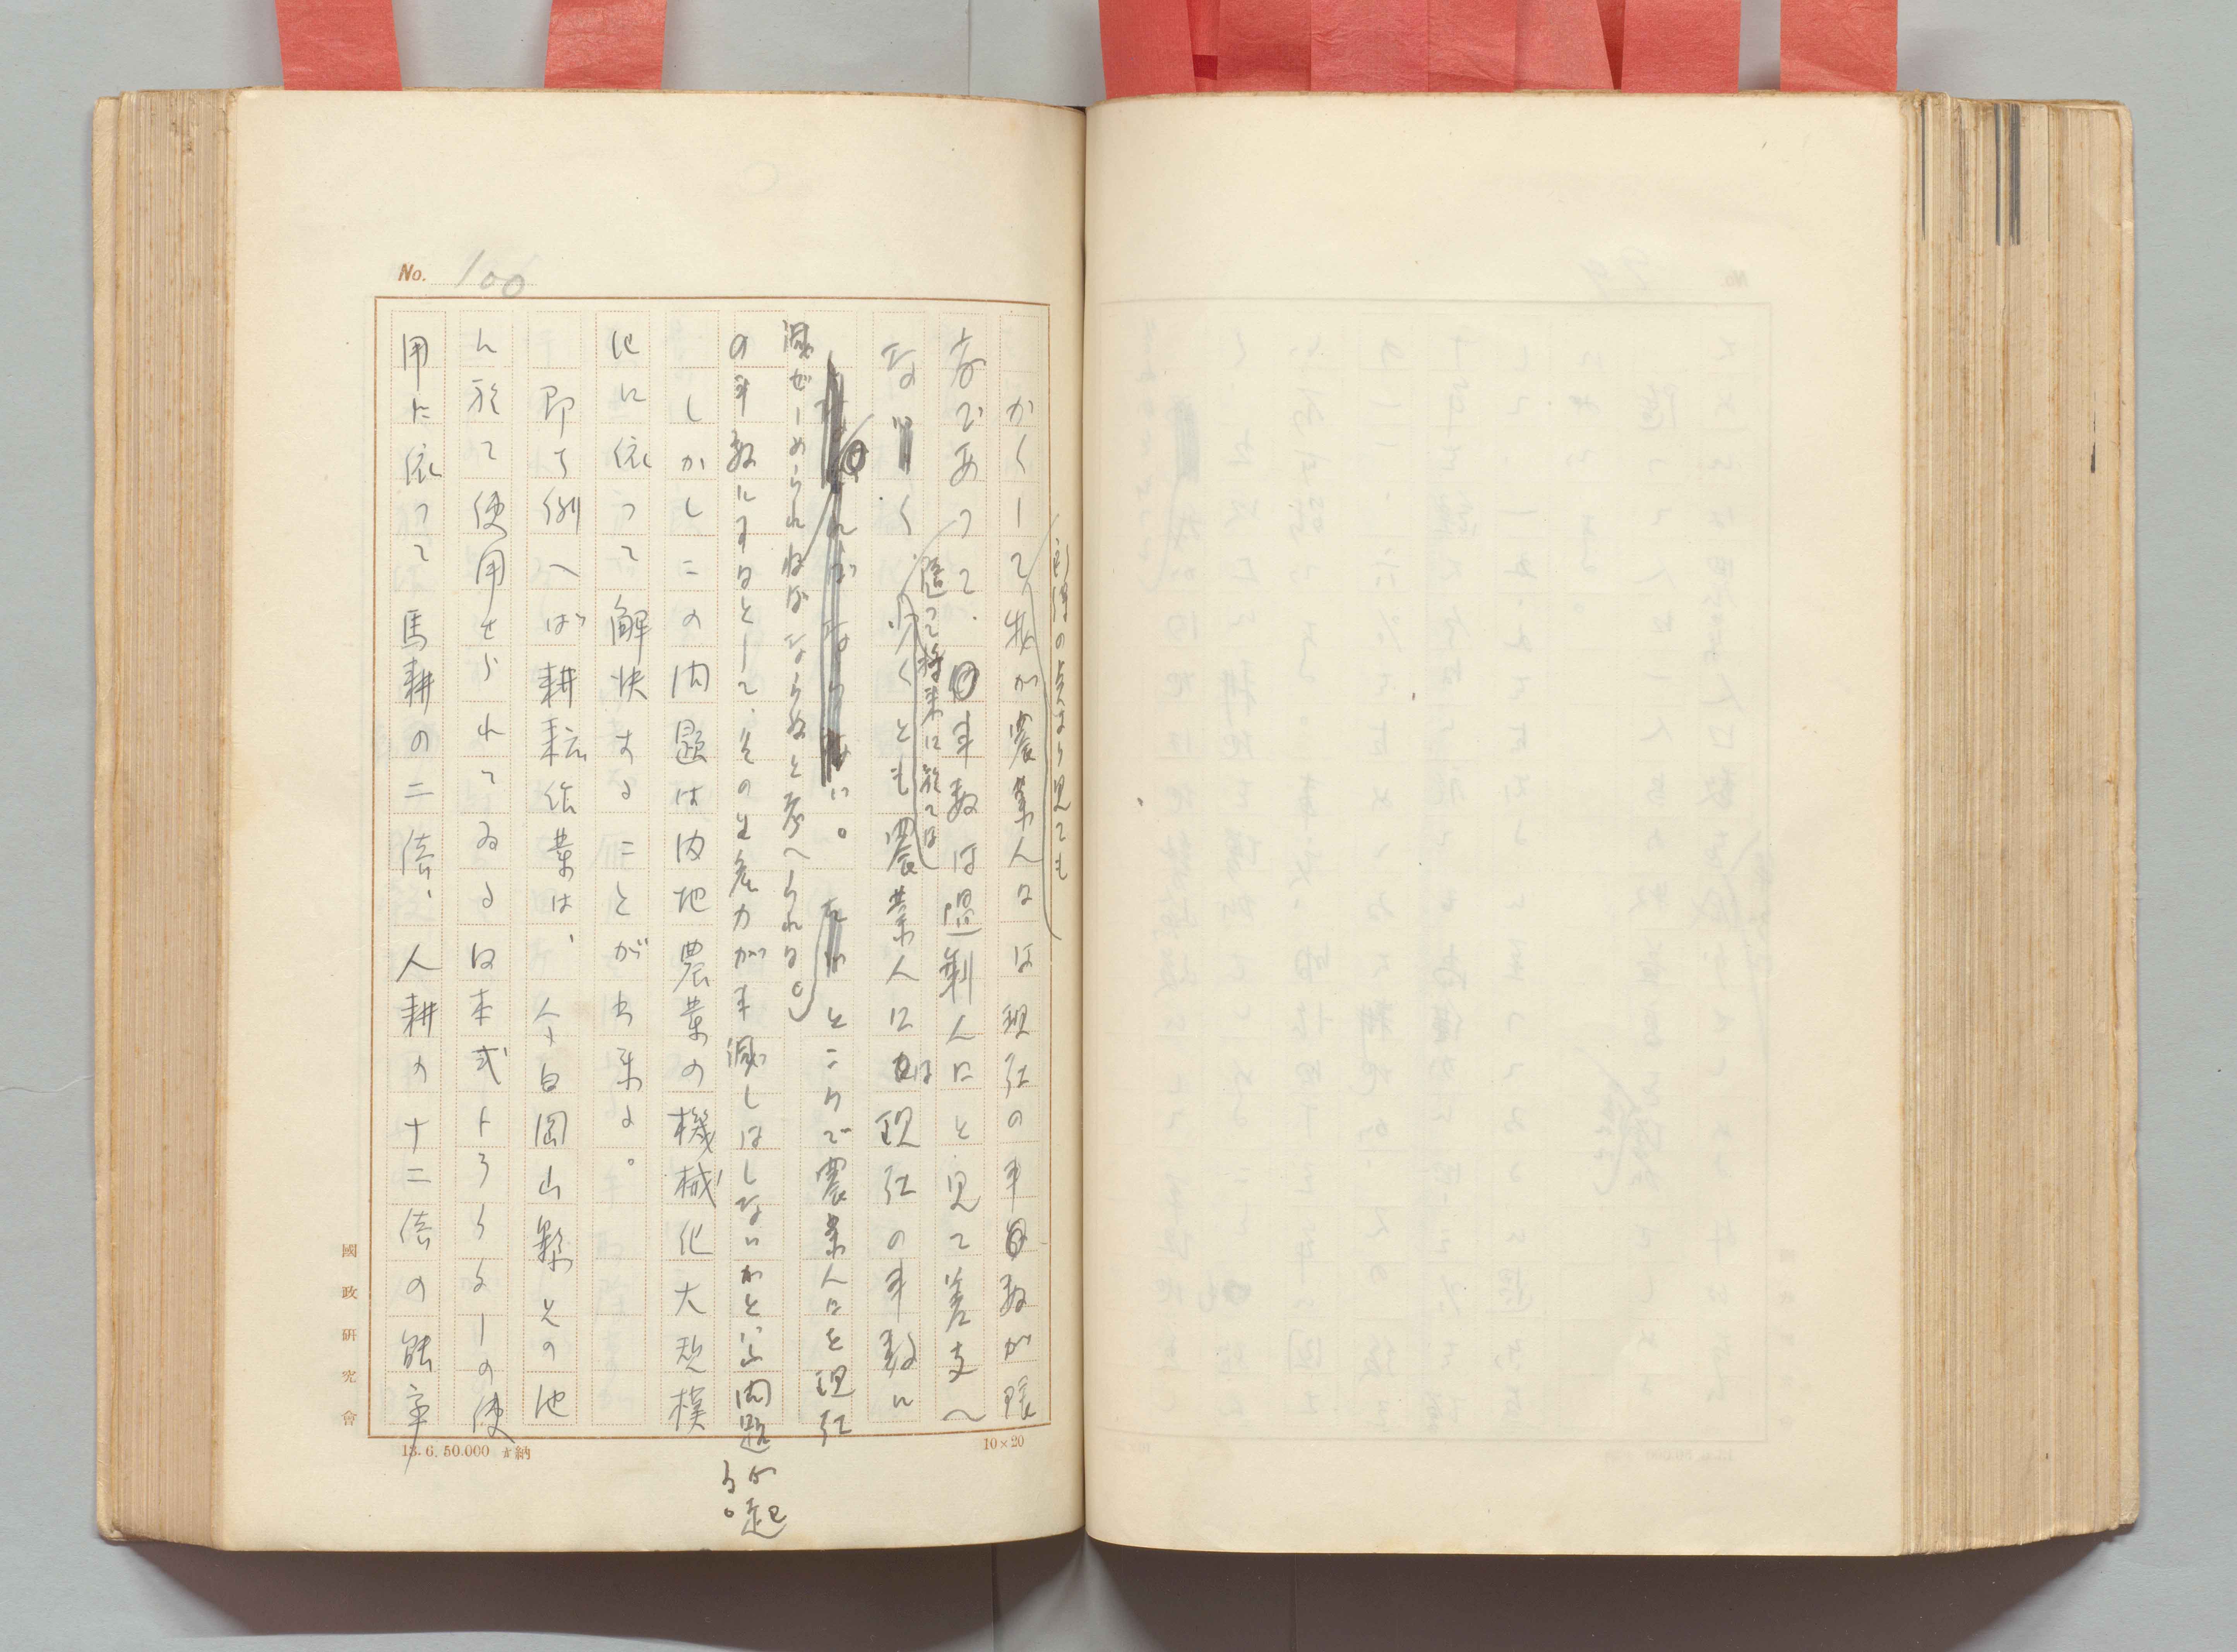 No. 100
かくして我が農業人口は現在の半数が限
度であつて、半数は過剰人口と見て差支へ
なく、少くとも農業人口は現在の半数に
減ぜしめられねばならぬと考へられる。
ところで農業人口を現在
の半数にするとして、その生産力が半減しはしないかといふ問題が起
る。
しかしこの問題は内地農業の機械化大規模
化に依つて解決することが出来る。
即ち例へば耕耘作業は、今日岡山縣その他
に於て使用せられてゐる日本式トラクターの使
用に依つて馬耕の二倍、人耕の十二倍の能率
の点より見ても
随つて将来に於ては
國政研究會
13. 6. 50.000 納
10×20